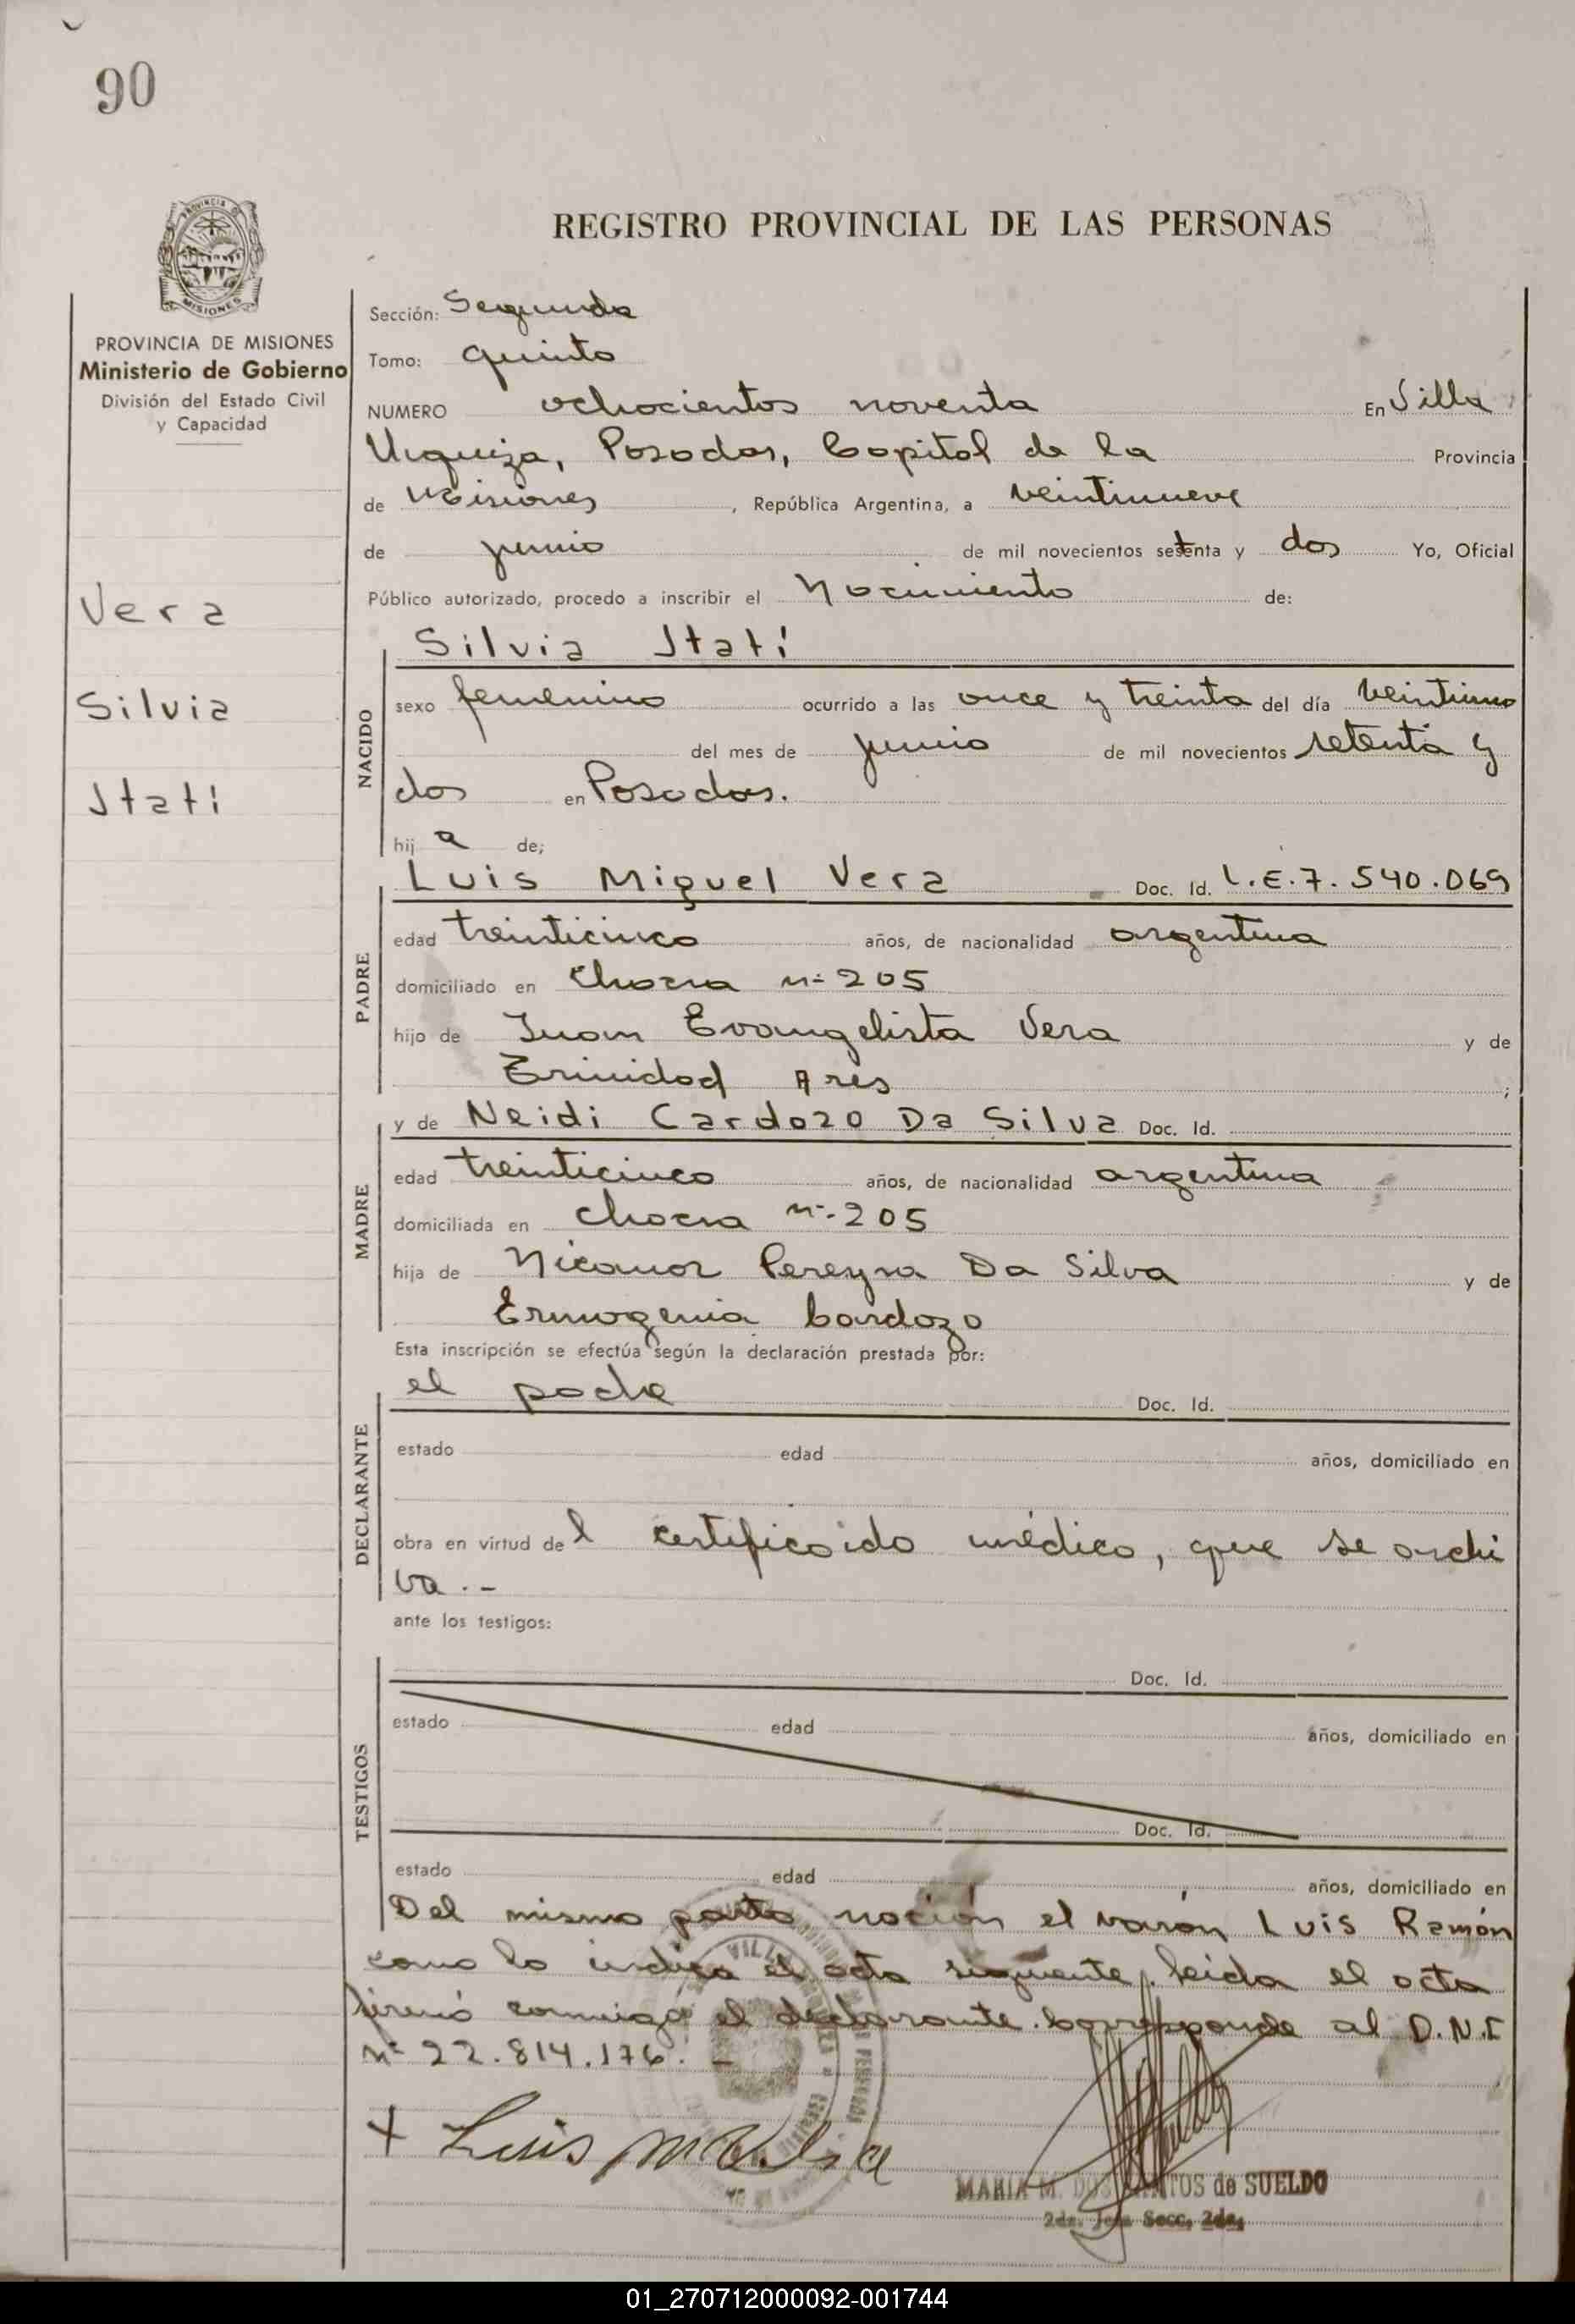 90
REGISTRO PROVINCIAL DE LAS PERSONAS
PROVINCIA DE MISIONES
Ministerio de Gobierno
División del Estado Civil
y Capacidad
Vera
Silvia
Itatí
Sección: Segunda
Tomo: quinto
NUMERO ochocientos noventa En Villa
Urquiza, Posadas, Capital de la Provincia
de Misiones, República Argentina, a veintinueve
de junio de mil novecientos setenta y dos Yo, Oficial
Público autorizado, procedo a inscribir el Nacimiento de:
NACIDO
Silvia Itatí
sexo femenino ocurrido a las once y treinta del día veintiuno
del mes de junio de mil novecientos setenta y
dos en Posadas.
hij a de;
PADRE
Luis Miguel Vera Doc. Id. L.E.7.540.069
edad treinticinco años, de nacionalidad argentina
domiciliado en Chacra nº 205
hijo de Juan Evangelista Vera y de
Trinidad Ares;
MADRE
y de Neidi Cardozo Da Silva Doc. Id.
edad treinticinco años, de nacionalidad argentina
domiciliada en chacra nº 205
hija de Nicanor Pereyra Da Silva y de
Ermogenia Cardozo
Esta inscripción se efectúa según la declaración prestada por:
DECLARANTE
el padre Doc. Id.
estado edad años, domiciliado en
obra en virtud de l certificaido médico, que se archi
va.-
ante los testigos:
TESTIGOS
Doc. Id.
estado edad años, domiciliado en
Doc. Id.
estado edad años, domiciliado en
Del mismo parto, nación el varón Luis Ramón
como lo indica el acta siguiente. leida el acta
firmó conmigo el declarante. Corresponde al D.N.I
Nº 22.814.176. -
+ Luis M
MARIA M. DOS SANTOS de SUELDO
2da. Jefa Secc. 2da.
01_270712000092-001744